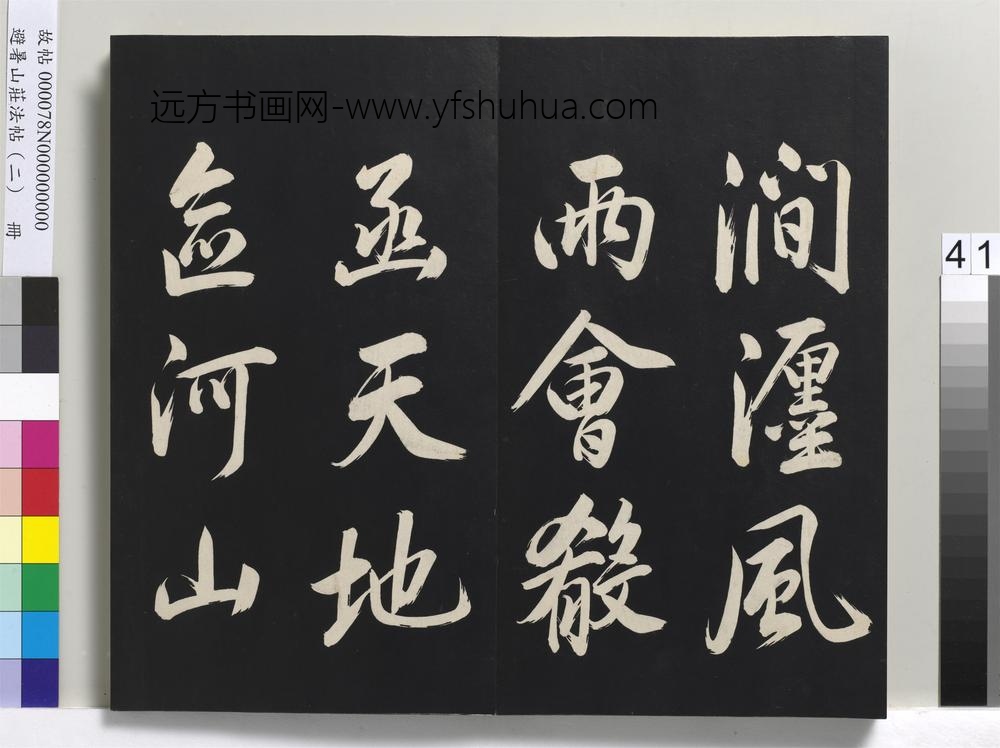 远方书画网-www.yfshuhua.com
澗瀍風
雨會殽
函天地
區河山
故帖 000078N000000000
避暑山莊法帖(二) 冊
41